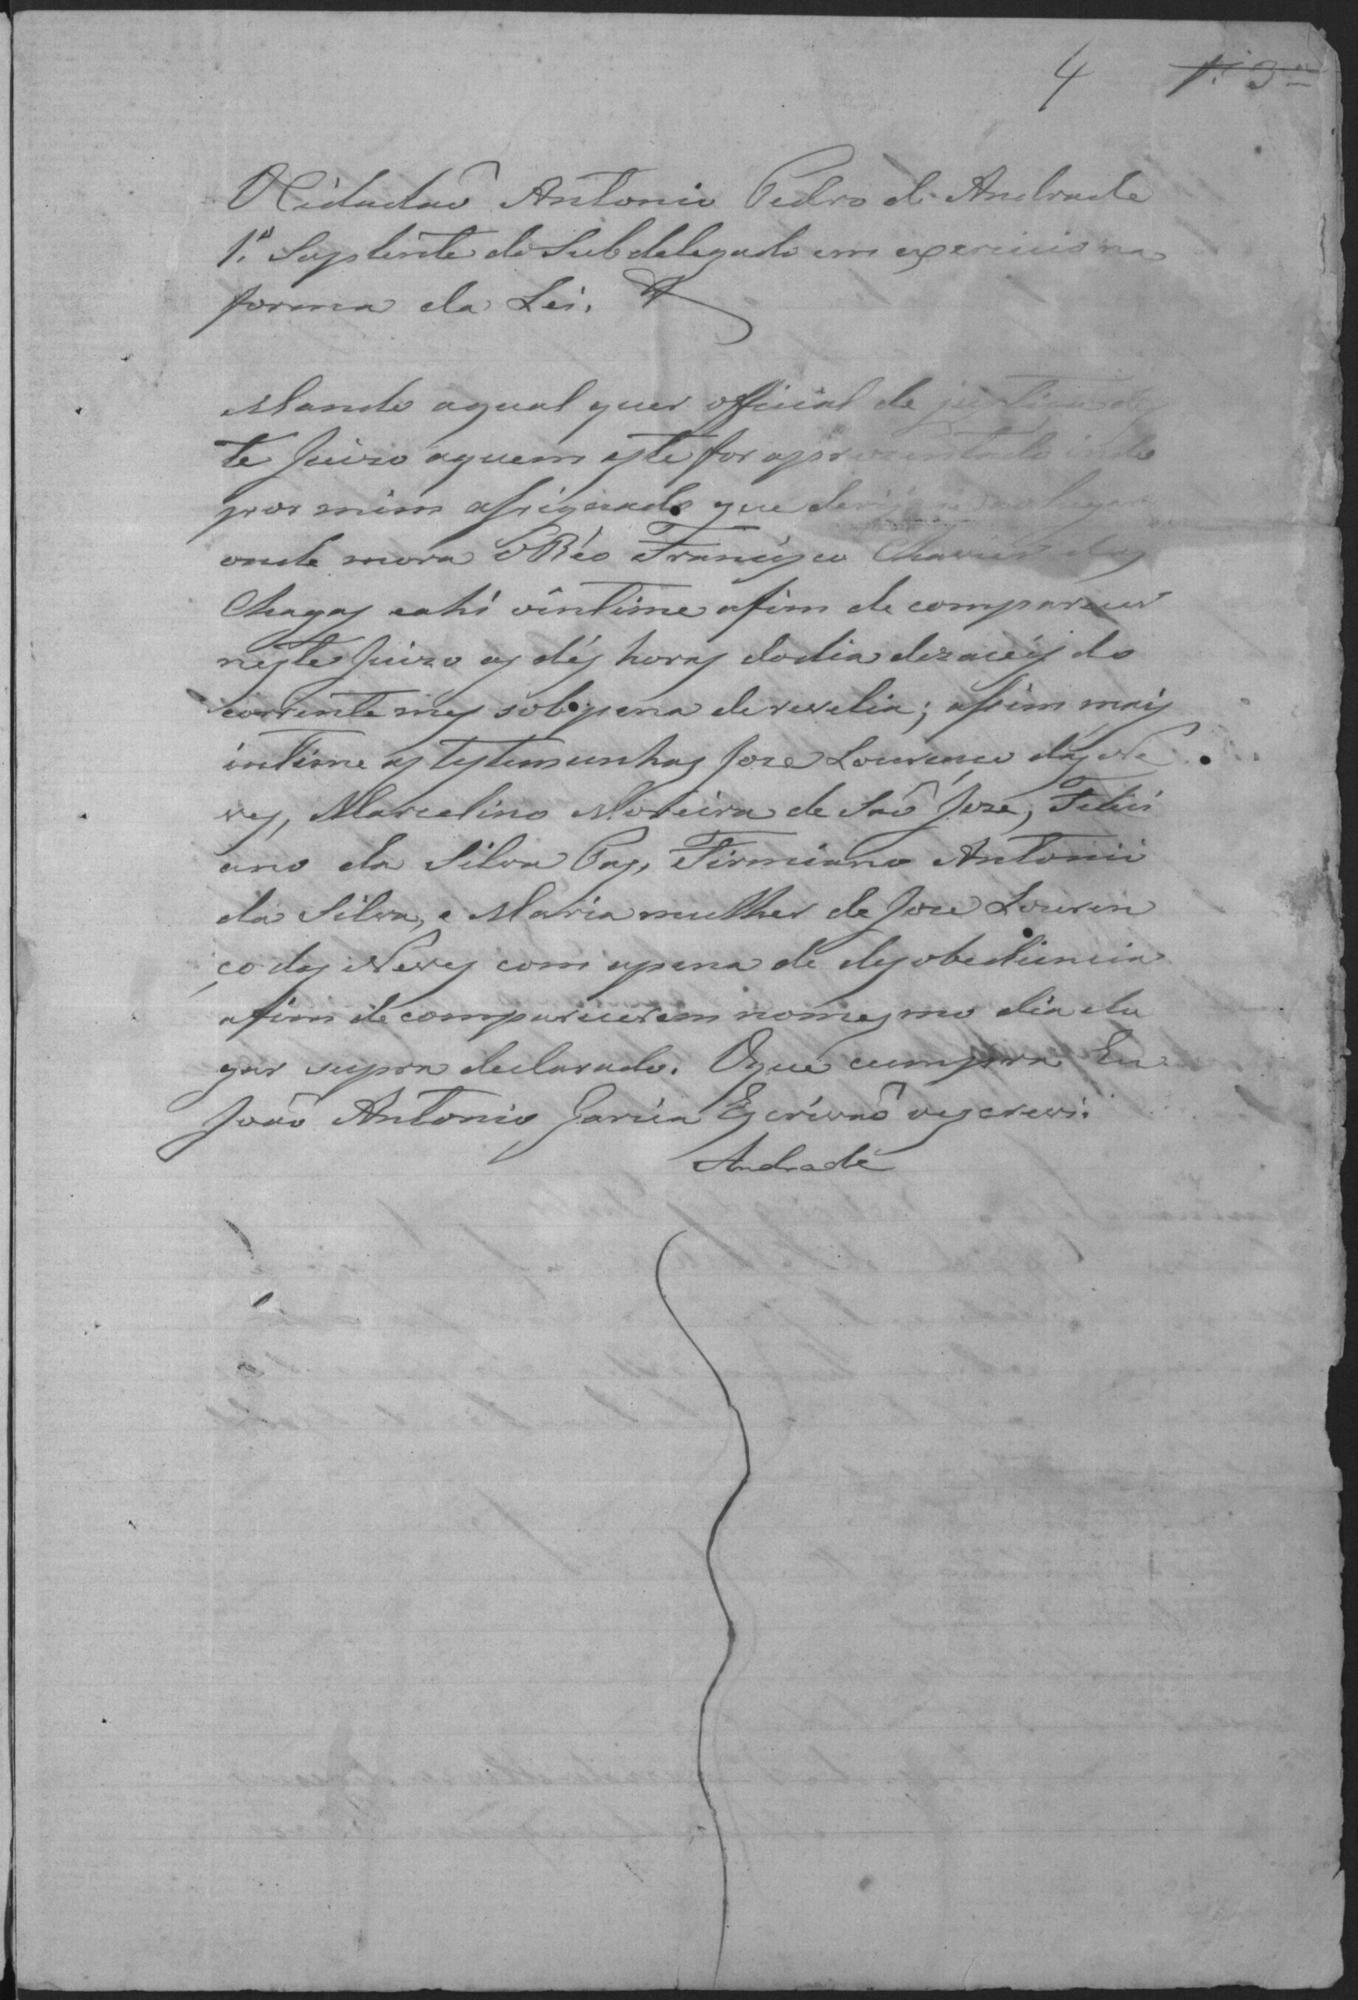 4 f. 3
O Cidadão Antonio Pedro de Andrade
1.º Suplente do Subdelegado em exercicio na
forma da Lei. &
Mando aqual quer official de justiça des
te Juizo aquem este for aprezentado indo
por mim assignado que
onde mora O Réo Francisco Chavier das
Chagas eahi ointime afim de comparecer
neste Juizo as dés horas dodia dezaceis do
corrente mes sobpena derevelia; assim mais
intime as testemunhas Joze Lourenço das Ne
ves, Marcelino Moreira de São Joze, Felici
ano da Silva Paz, Firmiano Antonio
da Silva, e Maria mulher de Joze Louren
ço das Neves com apena de desobediencia
afim de comparicerem nomesmo dia elu
gar supra declarado. Oque cumpra Eu
João Antonio Garcia Escrivaõ oescrevi.
Andrade